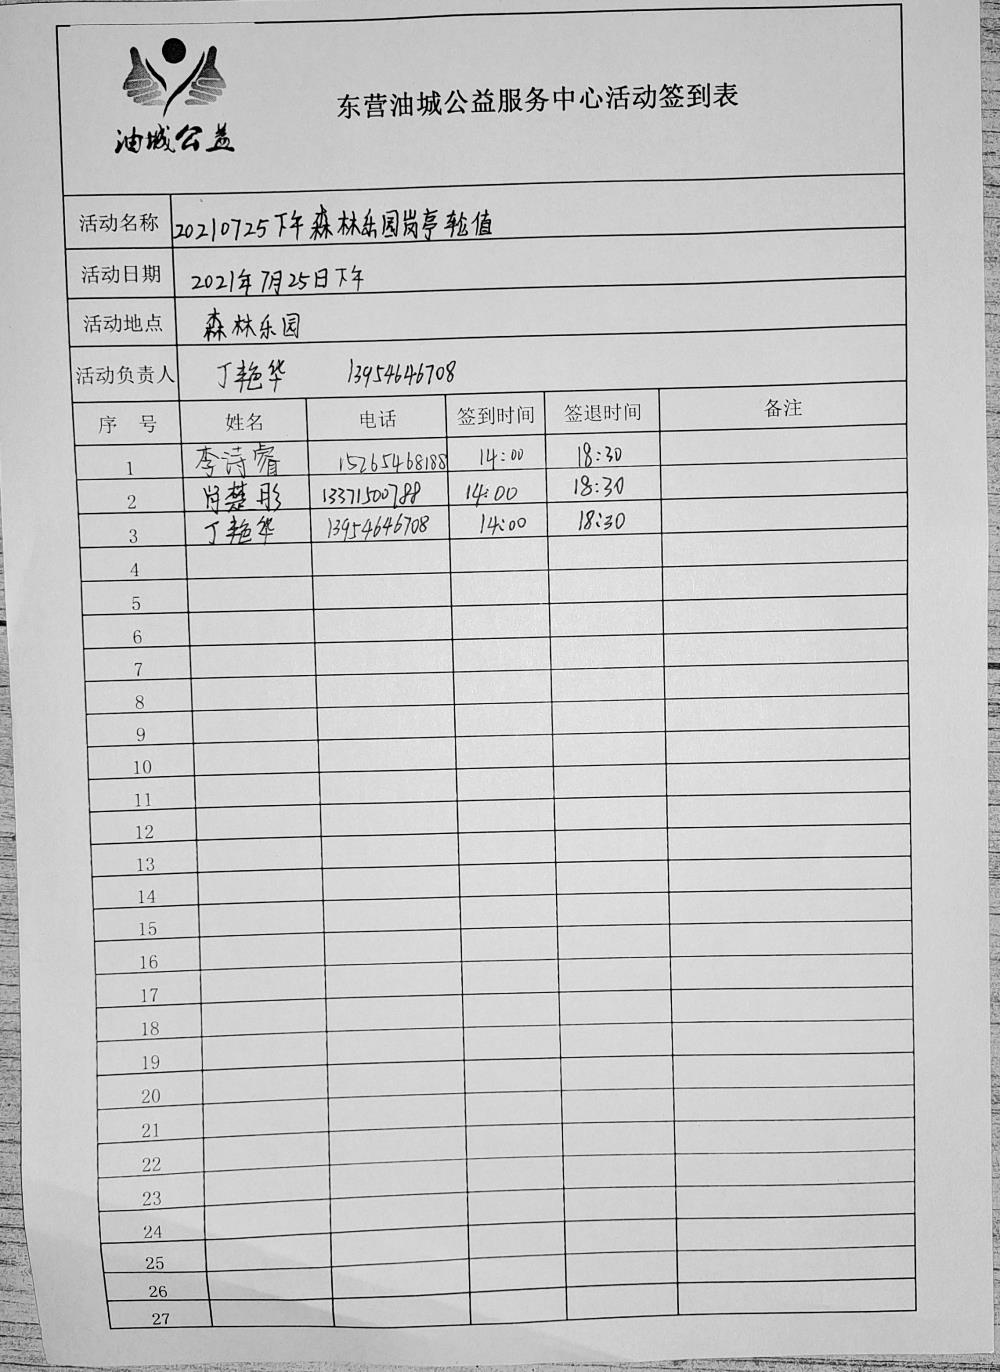 油城公益
东营油城公益服务中心活动签到表
活动名称 20210725下午森林乐园岗亭轮值
活动日期 2021年7月25日下午
活动地点 森林乐园
活动负责人 丁艳华 13954646708
序 号 姓名 电话 签到时间 签退时间 备注
1 李诗睿 15265468188 14:00 18:30
2 肖楚彤 13371500788 14:00 18:30
3 丁艳华 13954646708 14:00 18:30
4
5
6
7
8
9
10
11
12
13
14
15
16
17
18
19
20
21
22
23
24
25
26
27